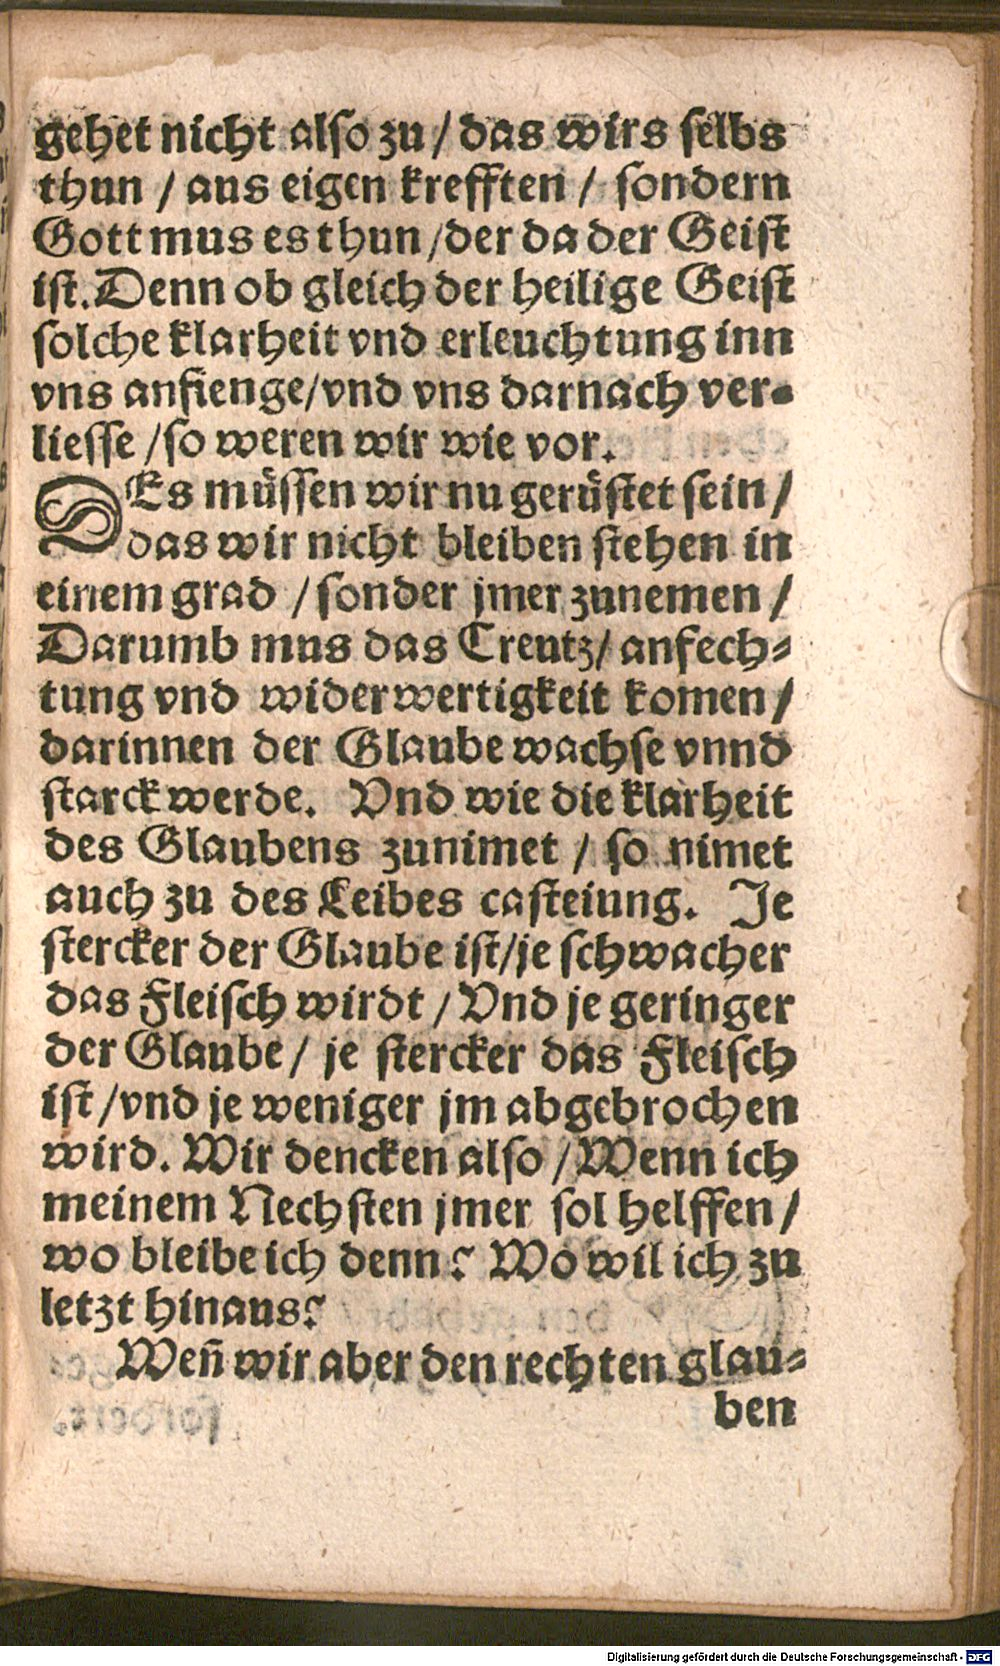 gehet nicht also zu / das wirs selbs
thun / aus eigen krefften / sondern
Gott mus es thun / der da der Geist
ist. Denn ob gleich der heilige Geist
solche klarheit vnd erleuchtung inn
vns anfienge / vnd vns darnach ver-
liesse / so weren wir wie vor.
SEs müssen wir nu gerüstet sein /
das wir nicht bleiben stehen in
einem grad / sonder jmer zunemen /
Darumb mus das Creutz / anfech-
tung vnd widerwertigkeit komen /
darinnen der Glaube wachse vnnd
starck werde. Vnd wie die klarheit
des Glaubens zunimet / so nimet
auch zu des Leibes casteiung. Je
stercker der Glaube ist / je schwacher
das Fleisch wirdt / Vnd je geringer
der Glaube / je stercker das Fleisch
ist / vnd je weniger jm abgebrochen
wird. Wir dencken also / Wenn ich
meinem Nechsten jmer sol helffen /
wo bleibe ich denn? Wo wil ich zu
letzt hinaus?
Weñ wir aber den rechten glau-
ben
Digitalisierung gefördert durch die Deutsche Forschungsgemeinschaft - DFG